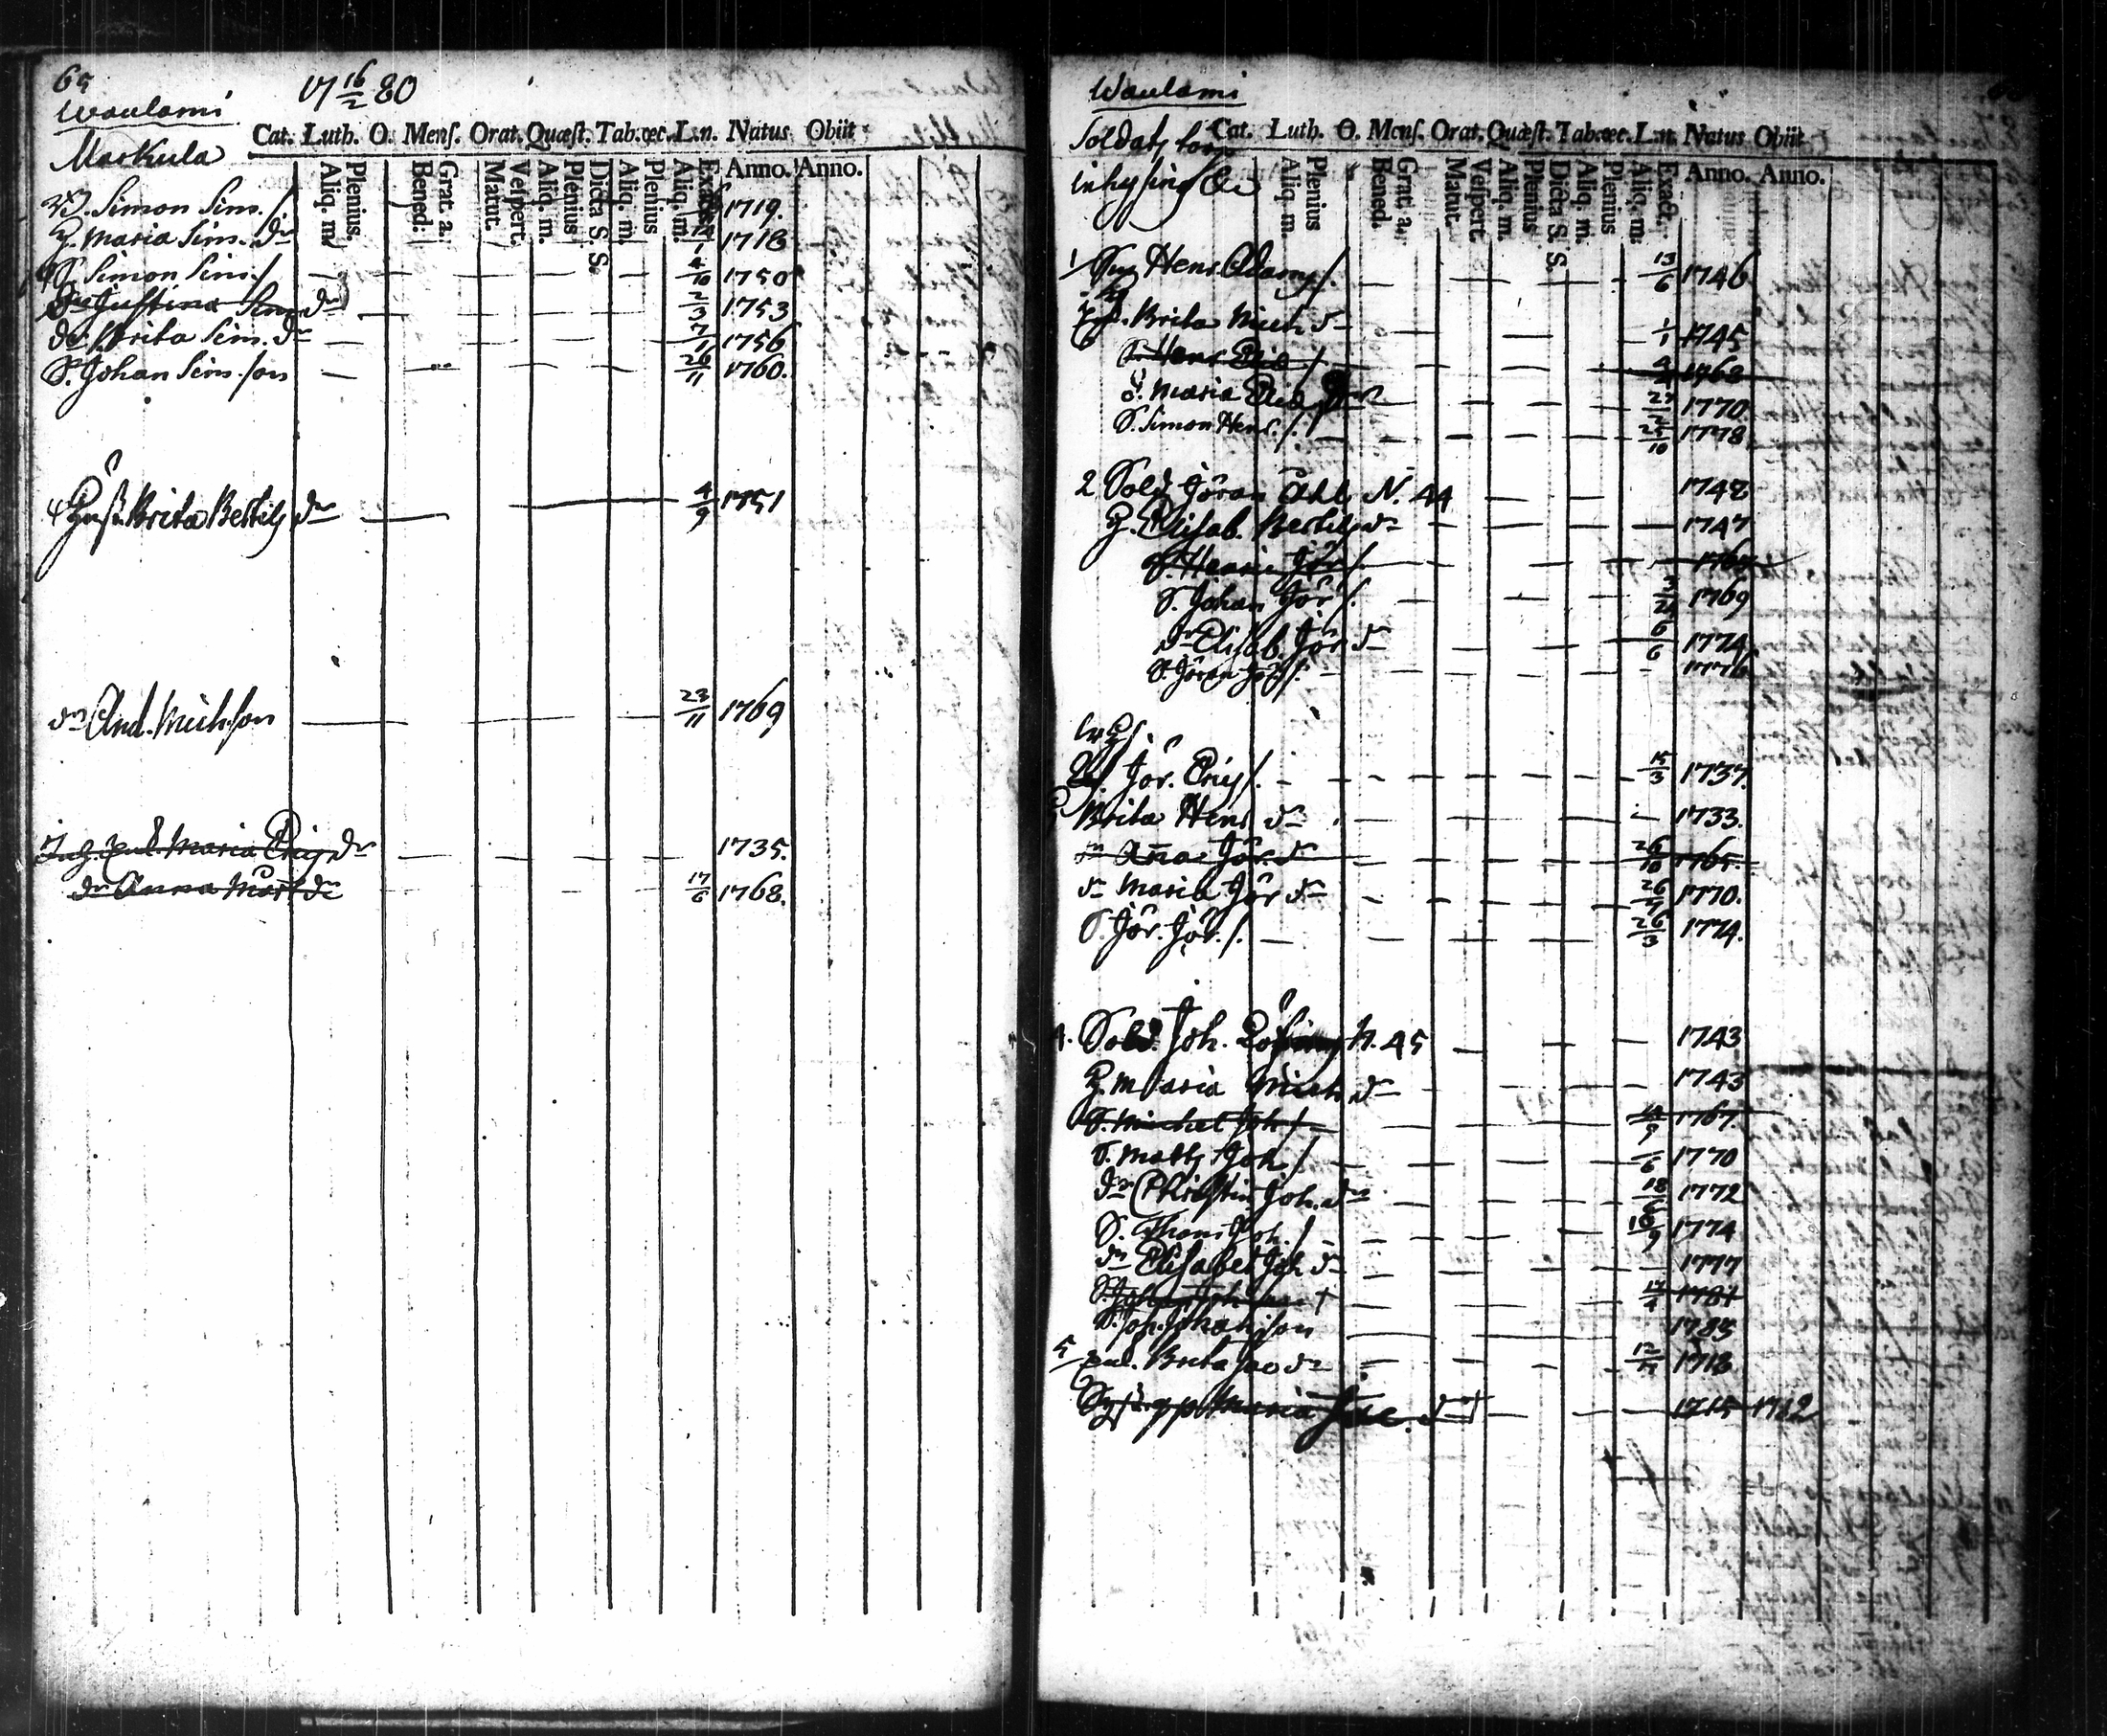 65 17 16/2 80
Waulami
Cat. Luth. O. Menſ. Orat. Quæſt. Tab.œc. L:n. Natus Obiit
Markula
Plenius. Aliq. m. Grat. a. Bened. Matut. Veſpert. Aliq. m. Plenius Dicta S. S. Aliq. m. Plenius Aliq. m. Exact. Anno. Anno.
Simon Sims. / 1719.
H. Maria Sims. dr 1718
S. Simon Sims. / 4/10 1750
dr Justina Sims dr 2/3 1753
dr Brita Sim. dr 7/1 1756
S. Johan Sim. son 26/11 1760.
Hust. Brita Bertils dr 4/9 1751
And. Mich. son 23/11 1769
Inh. Enk. Maria Erics dr 1735.
dr Anna Mårt dr 17/6 1768.
Waulami
Soldats torp Cat. Luth. O. Menſ. Orat. Quæſt. Tab.œc. L:n. Natus Obiit
inhysing
Plenius Aliq. m. Grat. a. Bened. Matut. Veſpert. Aliq. m. Plenius Dicta S. S. Aliq. m. Plenius Aliq. m. Exact. Anno. Anno.
1 Henr. Adams /. 13/6 1746
H. Brita Mich d 1/1 1745
S. Henr. / 1768
d. Maria 1770
S. Simon Henr. /. 25/10 1778
2 Sold. Göran Ahl N. 44 1742
H. Elisab. Bertils dr 1747
S. Henric Gör /.
S. Johan Gör /. 1769
dr Elisab. Gör. d 6/6 1774
S. Göran Gör /. 1776
Gör. Erics /. 15/3 1737.
Brita Henr. d 1733.
dr Anna Gör. d 26/10 1765.
d Maria Gör d 1770.
S. Gör. Gör. /. 26/3 1774.
4. Sold. Joh. N. 45 1743
H. Maria Mich. d 1743
S. Michel Joh / 1767.
S. Matts Joh / 1770
dr Christin Joh. dr 18/6 1772
S. Thom. Joh. / 16/9 1774
dr Elisabet Joh d 1777
S. Johan † 1781
S. Joh. Johansson 1785
5 Enk. Brita Jac d 1718
Maria Jac. d † 1715 1782